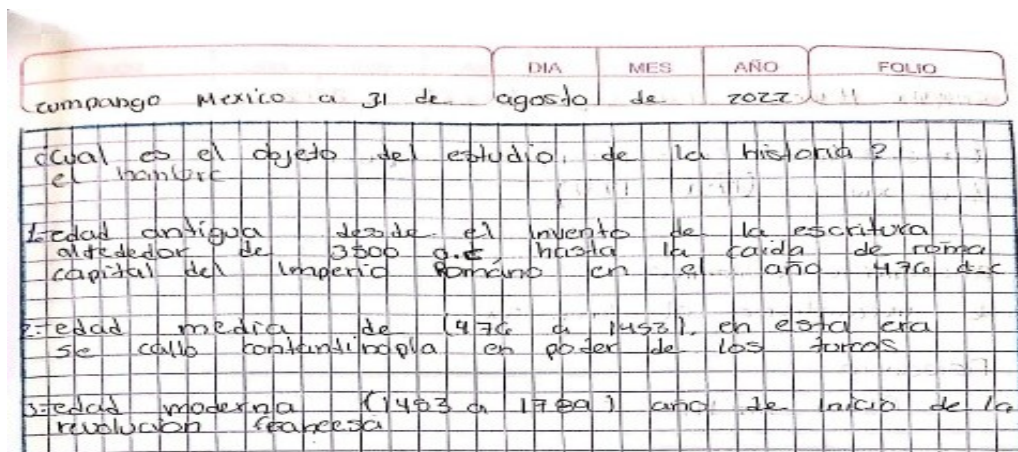 DIA MES AÑO FOLIO
cumpango Mexico a 31 de agosto de 2022
¿cual es el objeto del estudio de la Historia?
el hombre
1-edad antigua desde el invento de la escritura
alrededor de 3500 a.c, hasta la caida de roma
capital del imperio Romano en el año 476 d.c
2-edad media de (476 a 1453). en esta era
se callo contantinopla en poder de los turcos
3-edad moderna (1453 a 1789) año de inicio de la
revolucion francesa